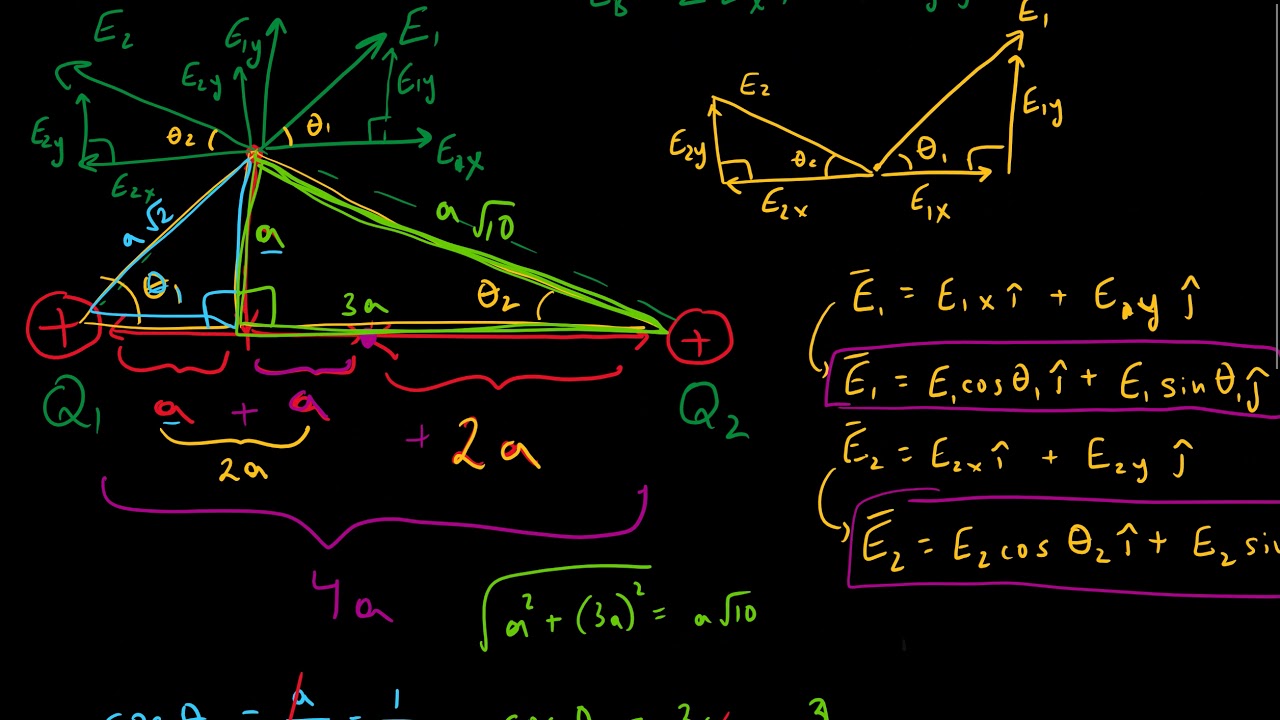 E₂
E₁y
E₁
E₂y
E₁y
E₂y
θ₂
θ₁
E₁x
E₂x
a√2
a
a√10
θ₁
3a
θ₂
+
+
Q₁
a + a + 2a
Q₂
2a
4a
√a² + (3a)² = a√10
E₁
E₂
E₁y
E₂y
θ₂
θ₁
E₂x
E₁x
Ē₁ = E₁x î + E₁y ĵ
Ē₁ = E₁cosθ₁ î + E₁ sinθ₁ ĵ
Ē₂ = E₂x î + E₂y ĵ
Ē₂ = E₂ cos θ₂ î + E₂ sin